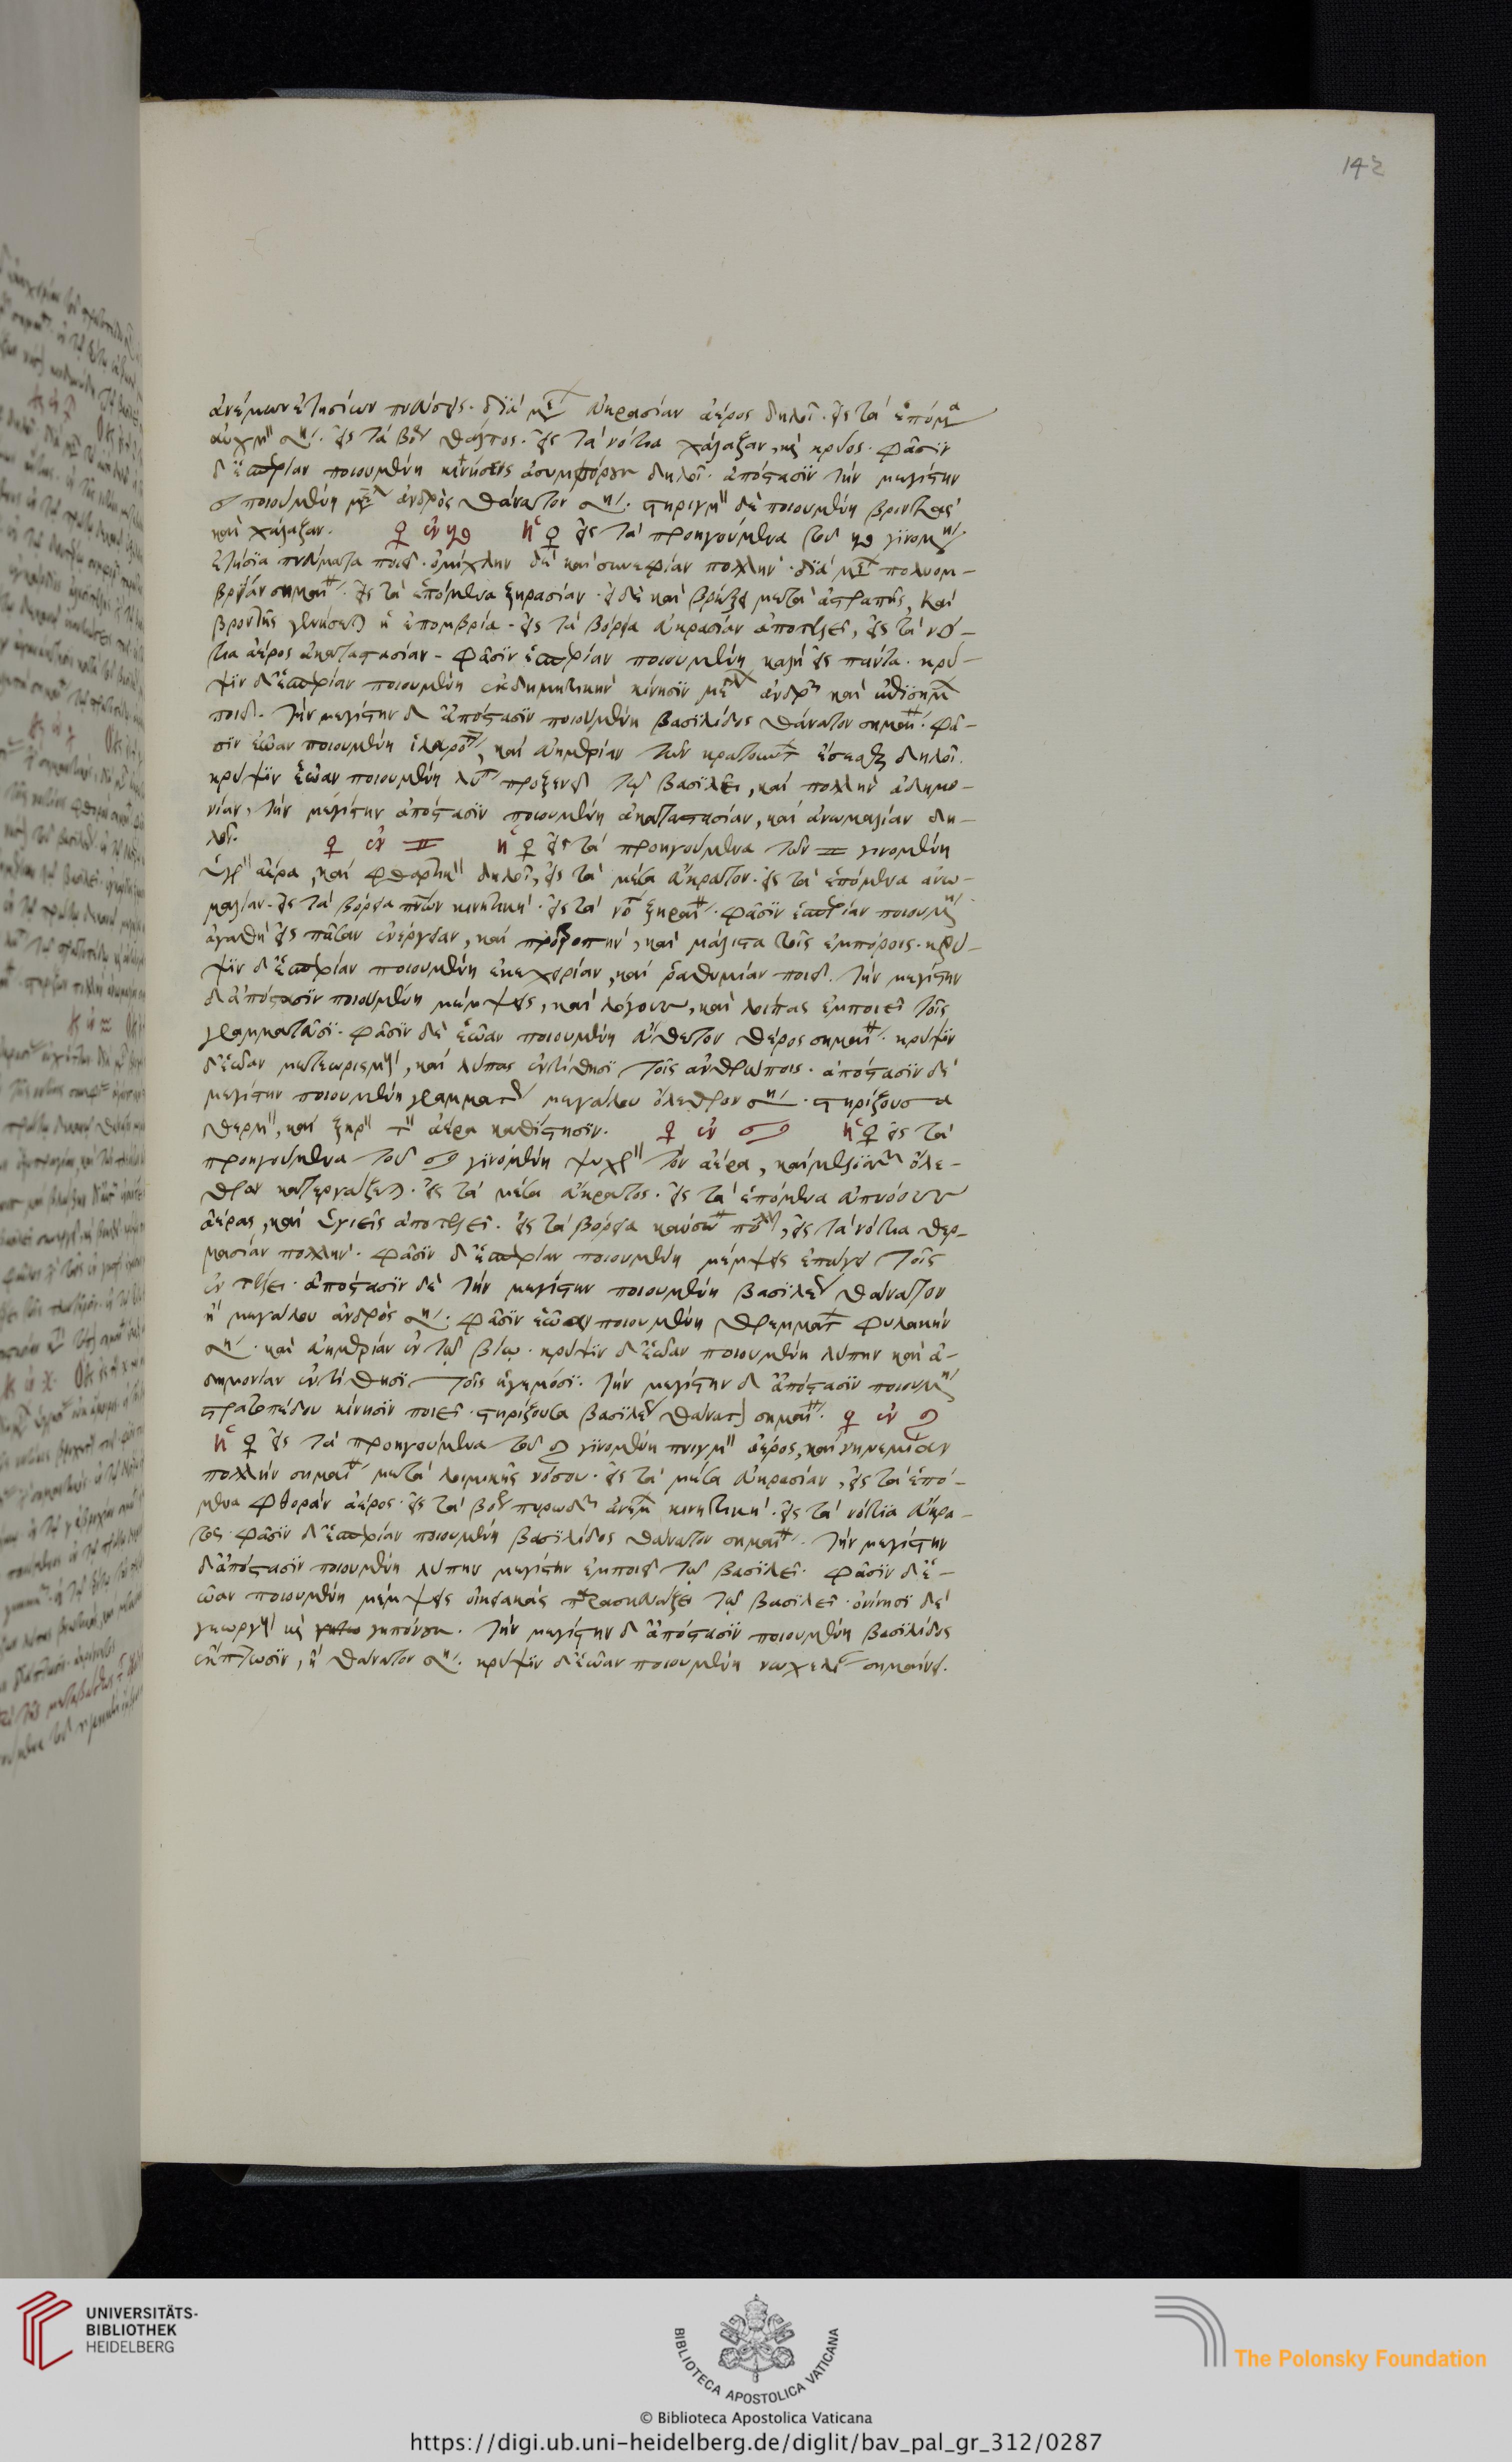 142
ἀνέμων ἐτησίων πνεύσεις. διὰ μέσ ἀκρασίαν ἀέρος δηλοῖ. εἰς τὰ ἑπόμ
αὐχμ ση. εἰς τὰ βο θάλπος. εἰς τὰ νότια χάλαζαν, κ κρύος. φᾶσιν
δ' ἑσπερίαν ποιουμένη κινήσεις ἀσυμφόρου δηλοῖ. ἀπόστασιν τὴν μεγίστην
ποιουμένη ἀνδρὸς θάνατον ση. στηριγμ δὲ ποιουμένη βροντὰς
καὶ χάλαζαν. ♀ ἐν ♊ ἡ ♀ εἰς τὰ προηγούμενα τοῦ ♊ γινομ
ἐτήσια πνεύματα ποιεῖ. ὁμίχλην δὲ καὶ συνεφίαν πολλήν. διὰ μέσ πολυομ-
βρίαν σημαί. εἰς τὰ ἑπόμενα ξηρασίαν. εἰ δὲ καὶ βρέξει μετὰ ἀστραπῆς, καὶ
βροντῆς γενήσετ ἡ ἐπομβρία. εἰς τὰ βόρεια ἀκρασίαν ἀποτελεῖ, εἰς τὰ νό-
τια ἀέρος ἀκαταστασίαν. φᾶσιν ἑσπερίαν ποιουμένη καλὴ εἰς πάντα. κρύ-
ψιν δ' ἑσπερίαν ποιουμένη κίνησιν ἀνδρ καὶ
ποιεῖ. τὴν μεγίστην δ' ἀπόστασιν ποιουμένη βασιλίδος θάνατον σημαί. φᾶ-
σιν ἑῴαν ποιουμένη ἱλαρότ, καὶ εὐημερίαν τῶν κρατουντ ἔσεσθ δηλοῖ.
κρύψιν ἑῴαν ποιουμένη λύπ προξενεῖ τῷ βασιλεῖ, καὶ πολλὴν ἀδημο-
νίαν, τὴν μεγίστην ἀπόστασιν ποιουμένη ἀκαταστασίαν, καὶ ἀνωμαλίαν δη-
λοῖ. ♀ ἐν ♊ ἡ ♀ εἰς τὰ προηγούμενα τῶν ♊ γινομένη
ὑγρ ἀέρα, καὶ φθαρτικ δηλοῖ, εἰς τὰ μέσα εὔκρατον. εἰς τὰ ἑπόμενα ἀνω-
μαλίαν. εἰς τὰ βόρεια πν κινητική. εἰς τὰ νό ξηραί. φᾶσιν ἑσπερίαν ποιουμ
ἀγαθὴ εἰς πᾶσαν ἐνέργειαν, καὶ προκοπήν, καὶ μάλιστα τοῖς ἐμπόροις. κρύ-
ψιν δ' ἑσπερίαν ποιουμένη ἐκεχειρίαν, καὶ ῥαθυμίαν ποιεῖ. τὴν μεγίστην
δ' ἀπόστασιν ποιουμένη μέμψεις, καὶ λόγους, καὶ λύπας ἐμποιεῖ τοῖς
γραμματεῦσι. φᾶσιν δὲ ἑῴαν ποιουμένη εὔθετον θέρος σημαί. κρύψιν
δ' ἑῴαν μετεωρισμ, καὶ λύπας ἐντίθησι τοῖς ἀνθρώποις. ἀπόστασιν δὲ
μεγίστην ποιουμένη γραμματ μεγάλου ὄλεθρον ση. στηρίζουσα
θερμ, καὶ ξηρ τ ἀέρα καθίστησιν. ♀ ἐν ♋ ἡ ♀ εἰς τὰ
προηγούμενα τοῦ ♋ γινομένη ψυχρ τὸν ἀέρα, καὶ ὄλε-
θρον κατεργάζετ. εἰς τὰ μέσα εὔκρατος. εἰς τὰ ἑπόμενα εὐπνόους
ἀέρας, καὶ ὑγιεῖς ἀποτελεῖ. εἰς τὰ βόρεια καύσω πο, εἰς τὰ νότια θερ-
μασίαν πολλήν. φᾶσιν δ' ἑσπερίαν ποιουμένη μέμψεις ἐπάγει τοῖς
ἐν τέλει. ἀπόστασιν δὲ τὴν μεγίστην ποιουμένη βασιλέ θάνατον
ἢ μεγάλου ἀνδρὸς ση. φᾶσιν ἑῴαν ποιουμένη θρεμματ φυλακὴν
ση. καὶ εὐημερίαν ἐν τῷ βίῳ. κρύψιν δ' ἑῴαν ποιουμένη λύπην καὶ ἀ-
δημονίαν ἐντίθησι τοῖς ἡγεμόσι. τὴν μεγίστην δ' ἀπόστασιν ποιουμ
στρατοπέδου κίνησιν ποιεῖ. στηρίζουσα βασιλέ θάνατ σημαί. ♀ ἐν ♌
ἡ ♀ εἰς τὰ προηγούμενα τοῦ ♌ γινομένη πνιγμ ἀέρος, καὶ νηνεμίαν
πολλὴν σημαί μετὰ λοιμικῆς νόσου. εἰς τὰ μέσα εὐκρασίαν, εἰς τὰ ἑπό-
μενα φθορὰν ἀέρος. εἰς τὰ βο πυρωδ ἀνέμ κινητική. εἰς τὰ νότια εὔκρα-
τος. φᾶσιν δ' ἑσπερίαν ποιουμένη βασιλίδος θάνατον σημαί. τὴν μεγίστην
δ' ἀπόστασιν ποιουμένη λύπην μεγίστην ἐμποιεῖ τῷ βασιλεῖ. φᾶσιν δ' ἑ-
ῴαν ποιουμένη μέμψεις οἰκειακὰς παρασκευάζει τῷ βασιλεῖ. ὀνίνησι δὲ
γεωργ κ γηπόνου. τὴν μεγίστην δ' ἀπόστασιν ποιουμένη βασιλίδος
ἔκπτωσιν, ἢ θάνατον ση. κρύψιν δ' ἑῴαν ποιουμένη νωχελί σημαίνει.
UNIVERSITÄTS-
BIBLIOTHEK
HEIDELBERG
BIBLIOTECA APOSTOLICA VATICANA
The Polonsky Foundation
© Biblioteca Apostolica Vaticana
https://digi.ub.uni-heidelberg.de/diglit/bav_pal_gr_312/0287